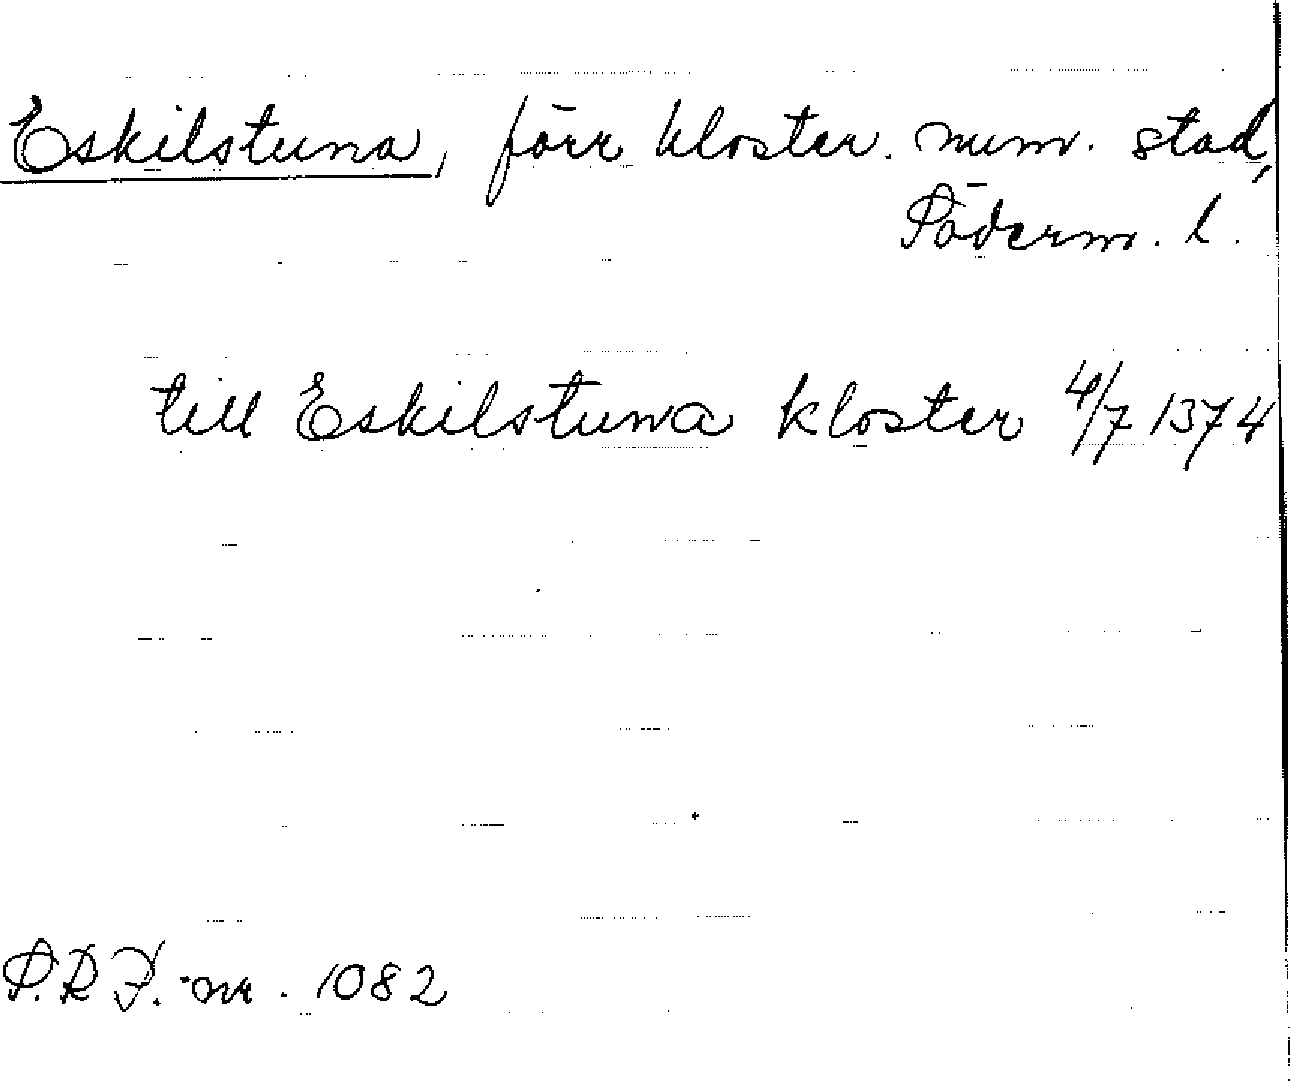 Eskilstuna, förr kloster. num. stad,
Söderm. l.
till Eskilstuna kloster 4/7 1374
S.R.P. nr. 1082